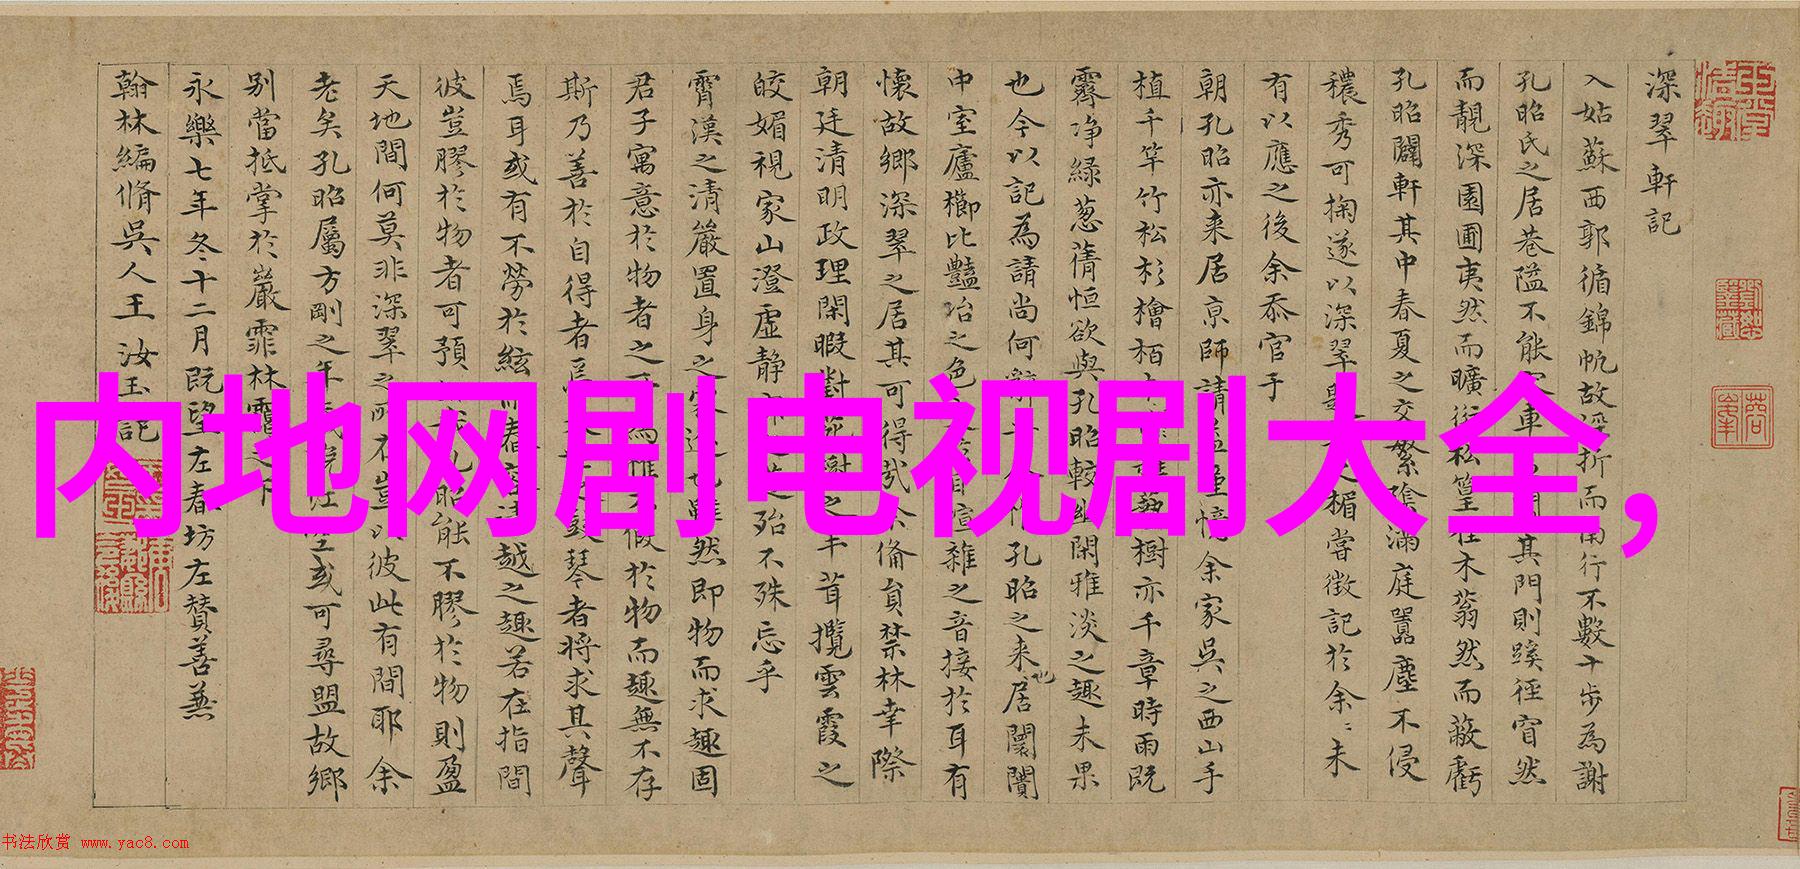 深翠軒記
入姑蘇西郭循錦帆故淫折而南行不數十步為謝
孔昭氏之居巷隘不能容車入門其門則蹊徑窅然
而靚深園圃夷然而曠衍松篁在木蓊然而蔽虧
孔昭闢軒其中春夏之交繁陰滿庭嚚塵不侵
穠秀可掬遂以深翠題之楣嘗徵記於余余未
有以應之後余忝官于
朝孔昭亦来居京師請益重惟余家吳之西山手
植千竿竹松杉檜栢樹亦千章時雨既
霽净緑葱蒨恒欲與孔昭較幽閑雅淡之趣未果
也今以記為請尚何辭孔昭之来居闤闠
中室廬櫛比豔冶之色目喧雜之音接於耳有
懷故鄉深翠之居其可得哉余偹員禁林幸際
朝廷清明政理閑暇對之草茸攬雲霞之
皎媚視家山澄虛静之殆不殊忘乎
霄漢之清嚴置身之邇也雖然即物而求趣固
君子寓意於物者之為惟不假於物而趣無不存
斯乃善於自得者焉鼓琴者将求其聲
焉耳或有不勞於絃越之趣若在指間
彼豈膠於物者可預孔昭能不膠於物則盈
天地間何莫非深翠之所在豈以彼此有間耶余
老矣孔昭屬方剛之年或可尋盟故鄉
别當抵掌於巖霏林靄之下
永樂七年冬十二月既望左春坊左贊善兼
翰林編脩吳人王汝玉記
内地网剧电视剧大全,
书法欣赏 www.yac8.com